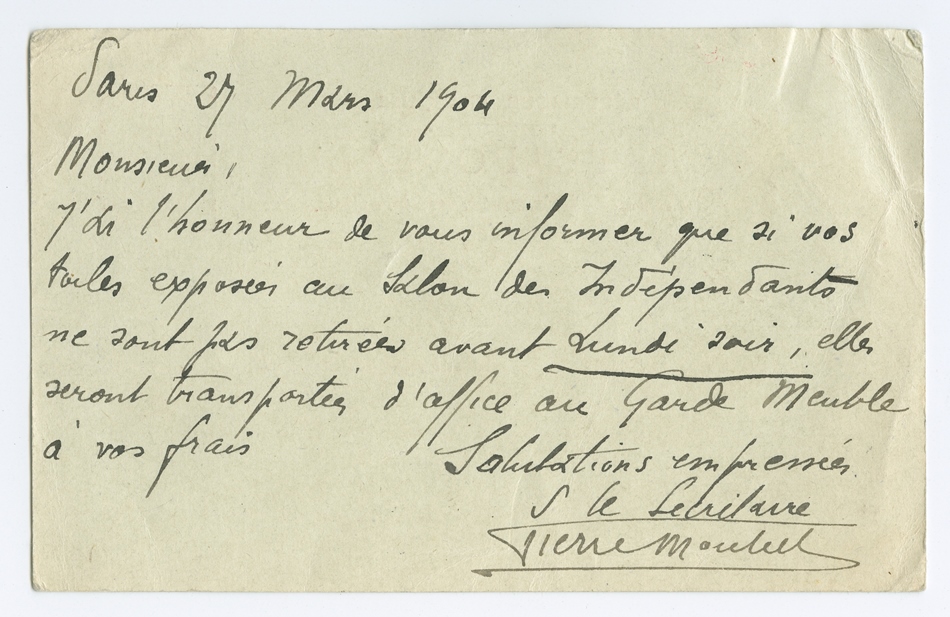 Paris 27 Mars 1904
Monsieur,
J'ai l'honneur de vous informer que si vos
toiles exposées au Salon des Indépendants
ne sont pas retirées avant Lundi soir, elles
seront transportées d'office au Garde Meuble
à vos frais
Salutations empressées
P le Secrétaire
Pierre